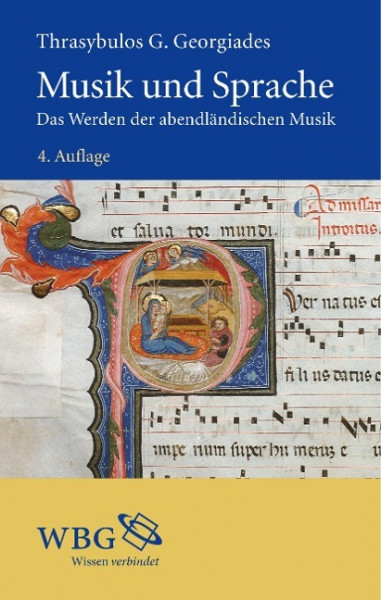 Thrasybulos G. Georgiades
Musik und Sprache
Das Werden der abendländischen Musik
4. Auflage
Ad missar
et salua tor mundi.
Introitus.
Ver na tus est
fi li us datus e
impe rium super hu meruz e
WBG
Wissen verbindet